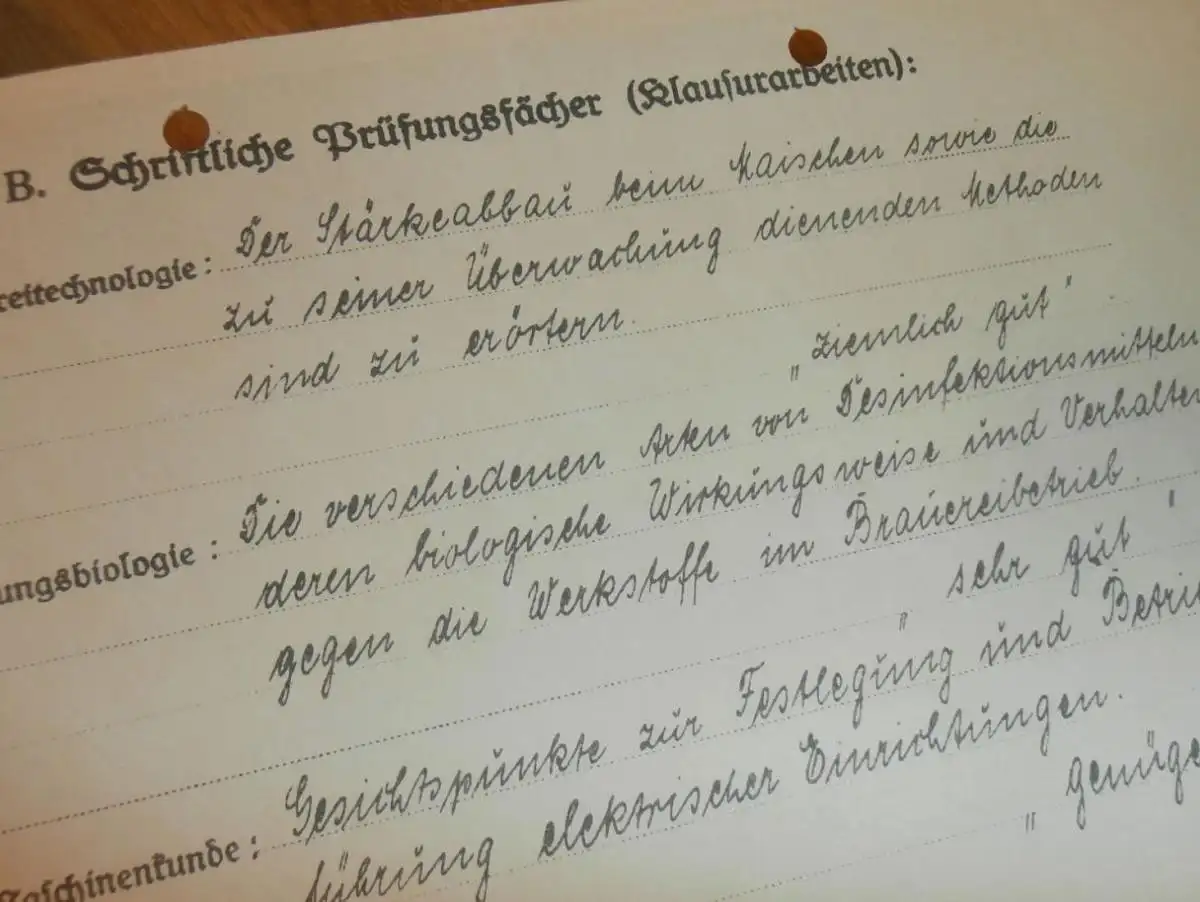 B. Schriftliche Prüfungsfächer (Klausurarbeiten):
reitechnologie: Der Stärkeabbau beim Maischen sowie die
zu seiner Überwachung dienenden Methoden
sind zu erörtern.
„ziemlich gut“.
ungsbiologie: Die verschiedenen Arten von Desinfektionsmitteln
deren biologische Wirkungsweise und Verhalten
gegen die Werkstoffe im Brauereibetrieb.
„sehr gut“
Maschinenkunde: Gesichtspunkte zur Festlegung und Betrie
führung elektrischer Einrichtungen.
„genüge